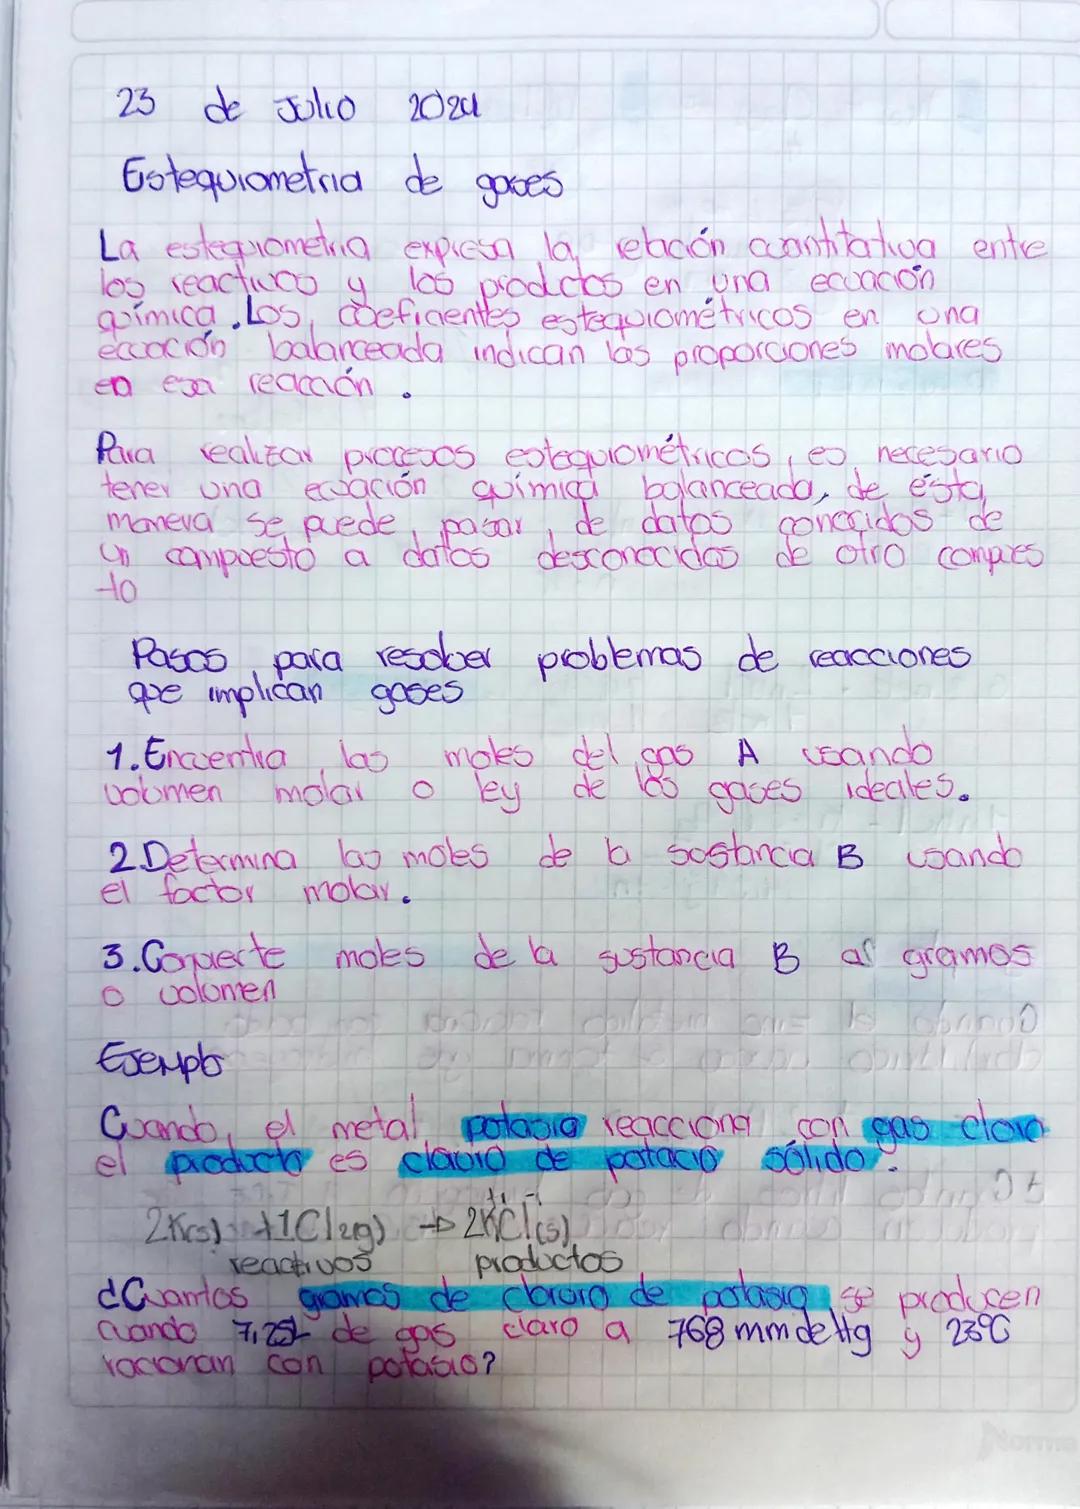 23 de Julio 2024
Estequiometria de gases
La estequiometria expresa la relación cuantitativa entre
los reactivos y los productos en una ecuación
química. Los coeficientes estequiométricos en una
ecuación balanceada indican las proporciones molares
en esa reacción.
Para realizar procesos estequiométricos, es necesario
tener una ecuación química balanceada, de ésta
manera se puede pasar de datos conocidos de
un compuesto a datos desconocidos de otro compues
-to
Pasos para resolver problemas de reacciones
que implican gases
1. Encuentra las moles del gas A usando
volumen molar o ley de los gases ideales.
2. Determina las moles de la sustancia B usando
el factor molar.
3. Convierte moles de la sustancia B a gramos
o volumen
Ejemplo
Cuando el metal potasio reacciona con gas cloro
el producto es cloruro de potacio sólido.
+1 -1
2K(s) + 1Cl2(g) → 2KCl(s)
reactivos productos
¿Cuantos gramos de cloruro de potasio se producen
cuando 7,25L de gas cloro a 768 mm de Hg y 23°C
racionan con potasio?
Norma